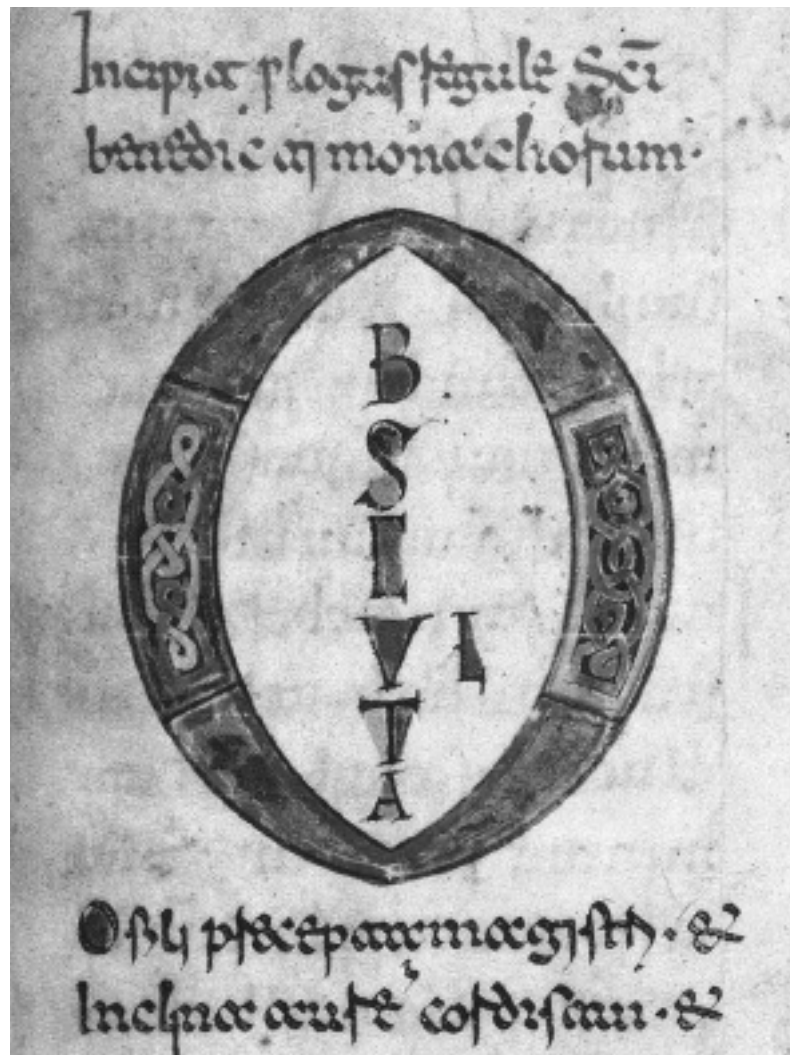 Incipit plogus regule Sci
benedicti monachorum.
O
B
S
I
V L
T
A
O fili precepta magistri. &
Inclina aure cordis tui. &